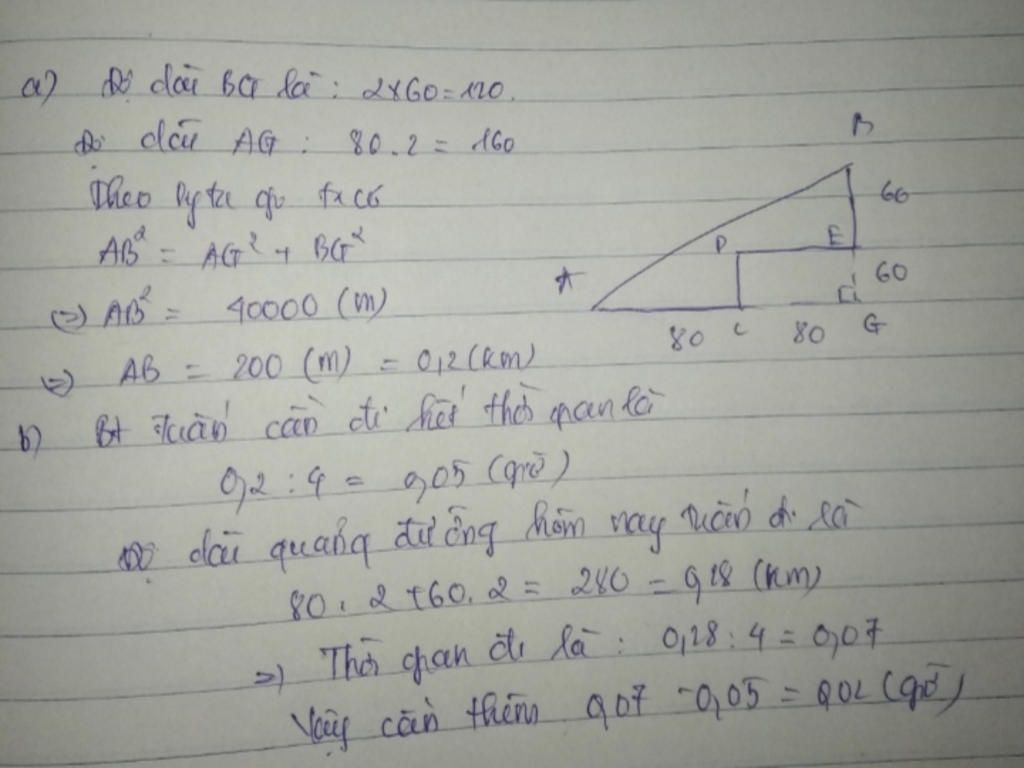 a) Độ dài BG là : 2x60=120.
Độ dài AG : 80.2 = 160
Theo Pytago ta có
AB² = AG² + BG²
(=) AB² = 40000 (m)
(=) AB = 200 (m) = 0,2(km)
B
60
D E
A
60
80 C 80 G
b) Bt Tuấn cần đi hết thời gian là
0,2 : 4 = 0,05 (giờ)
Độ dài quảng đường hôm nay Tuấn đi là
80.2+60.2 = 280 = 0,28 (km)
=) Thời gian đi là : 0,28:4=0,07
Vậy cần thêm 0,07-0,05=0,02 (giờ)